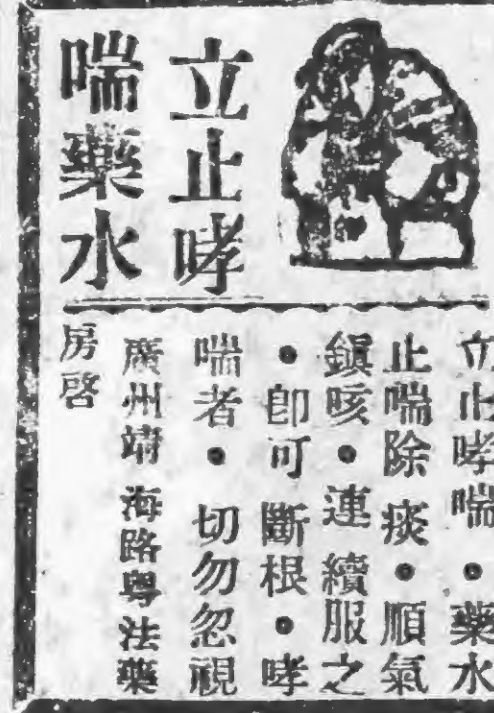 立止哮
喘藥水
立止哮喘•藥水
止喘除痰•順氣
鎭咳•連續服之
•卽可斷根•哮
喘者•切勿忽視
廣州靖海路粤法藥
房啓